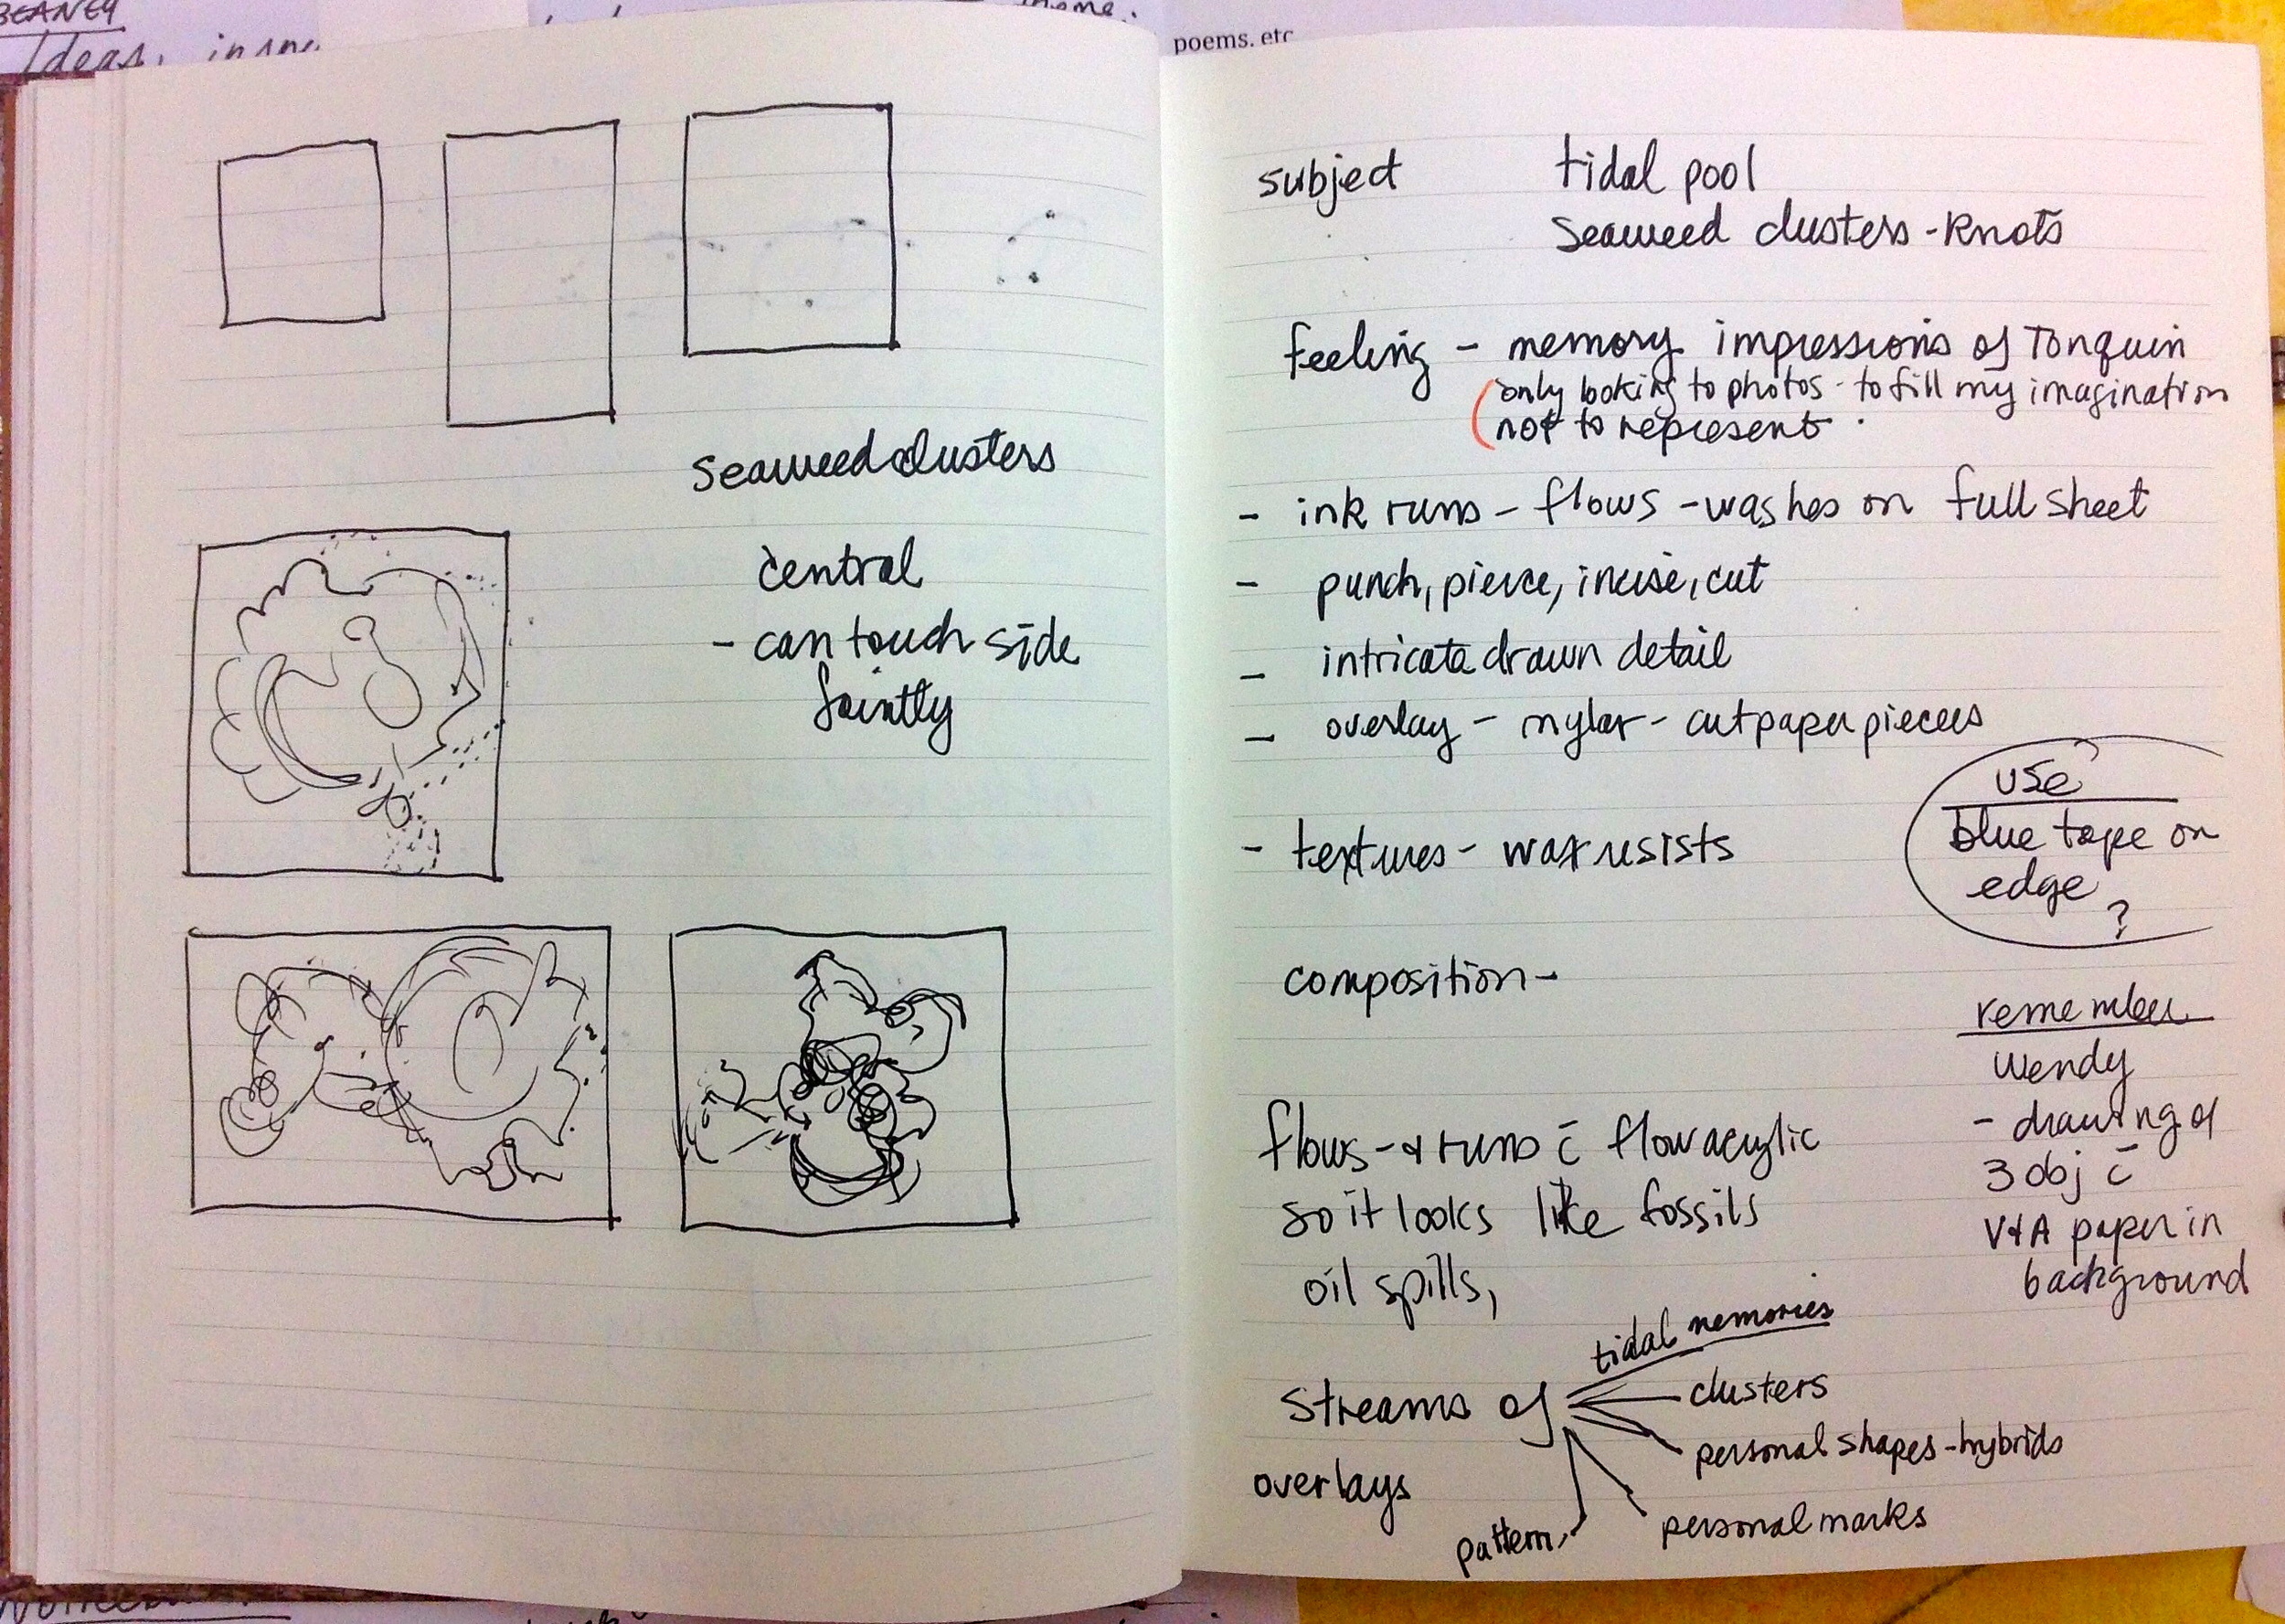 BEANEY
Ideas,
poems. etc
seaweed clusters
central
- can touch side
faintly
subject tidal pool
seaweed clusters - knots
feeling - memory impressions of Tonquin
(only looking to photos - to fill my imagination
not to represent.
- ink runs - flows - washes on full sheet
- punch, pierce, incise, cut
- intricate drawn detail
- overlay - mylar - cut paper pieces
use
blue tape on
edge
?
- textures - wax resists
composition -
remember
Wendy
- drawing of
3 obj c̄
V&A paper in
background
flows - & runs c̄ flow acrylic
so it looks like fossils
oil spills,
tidal memories
streams of
clusters
personal shapes - hybrids
overlays
personal marks
pattern